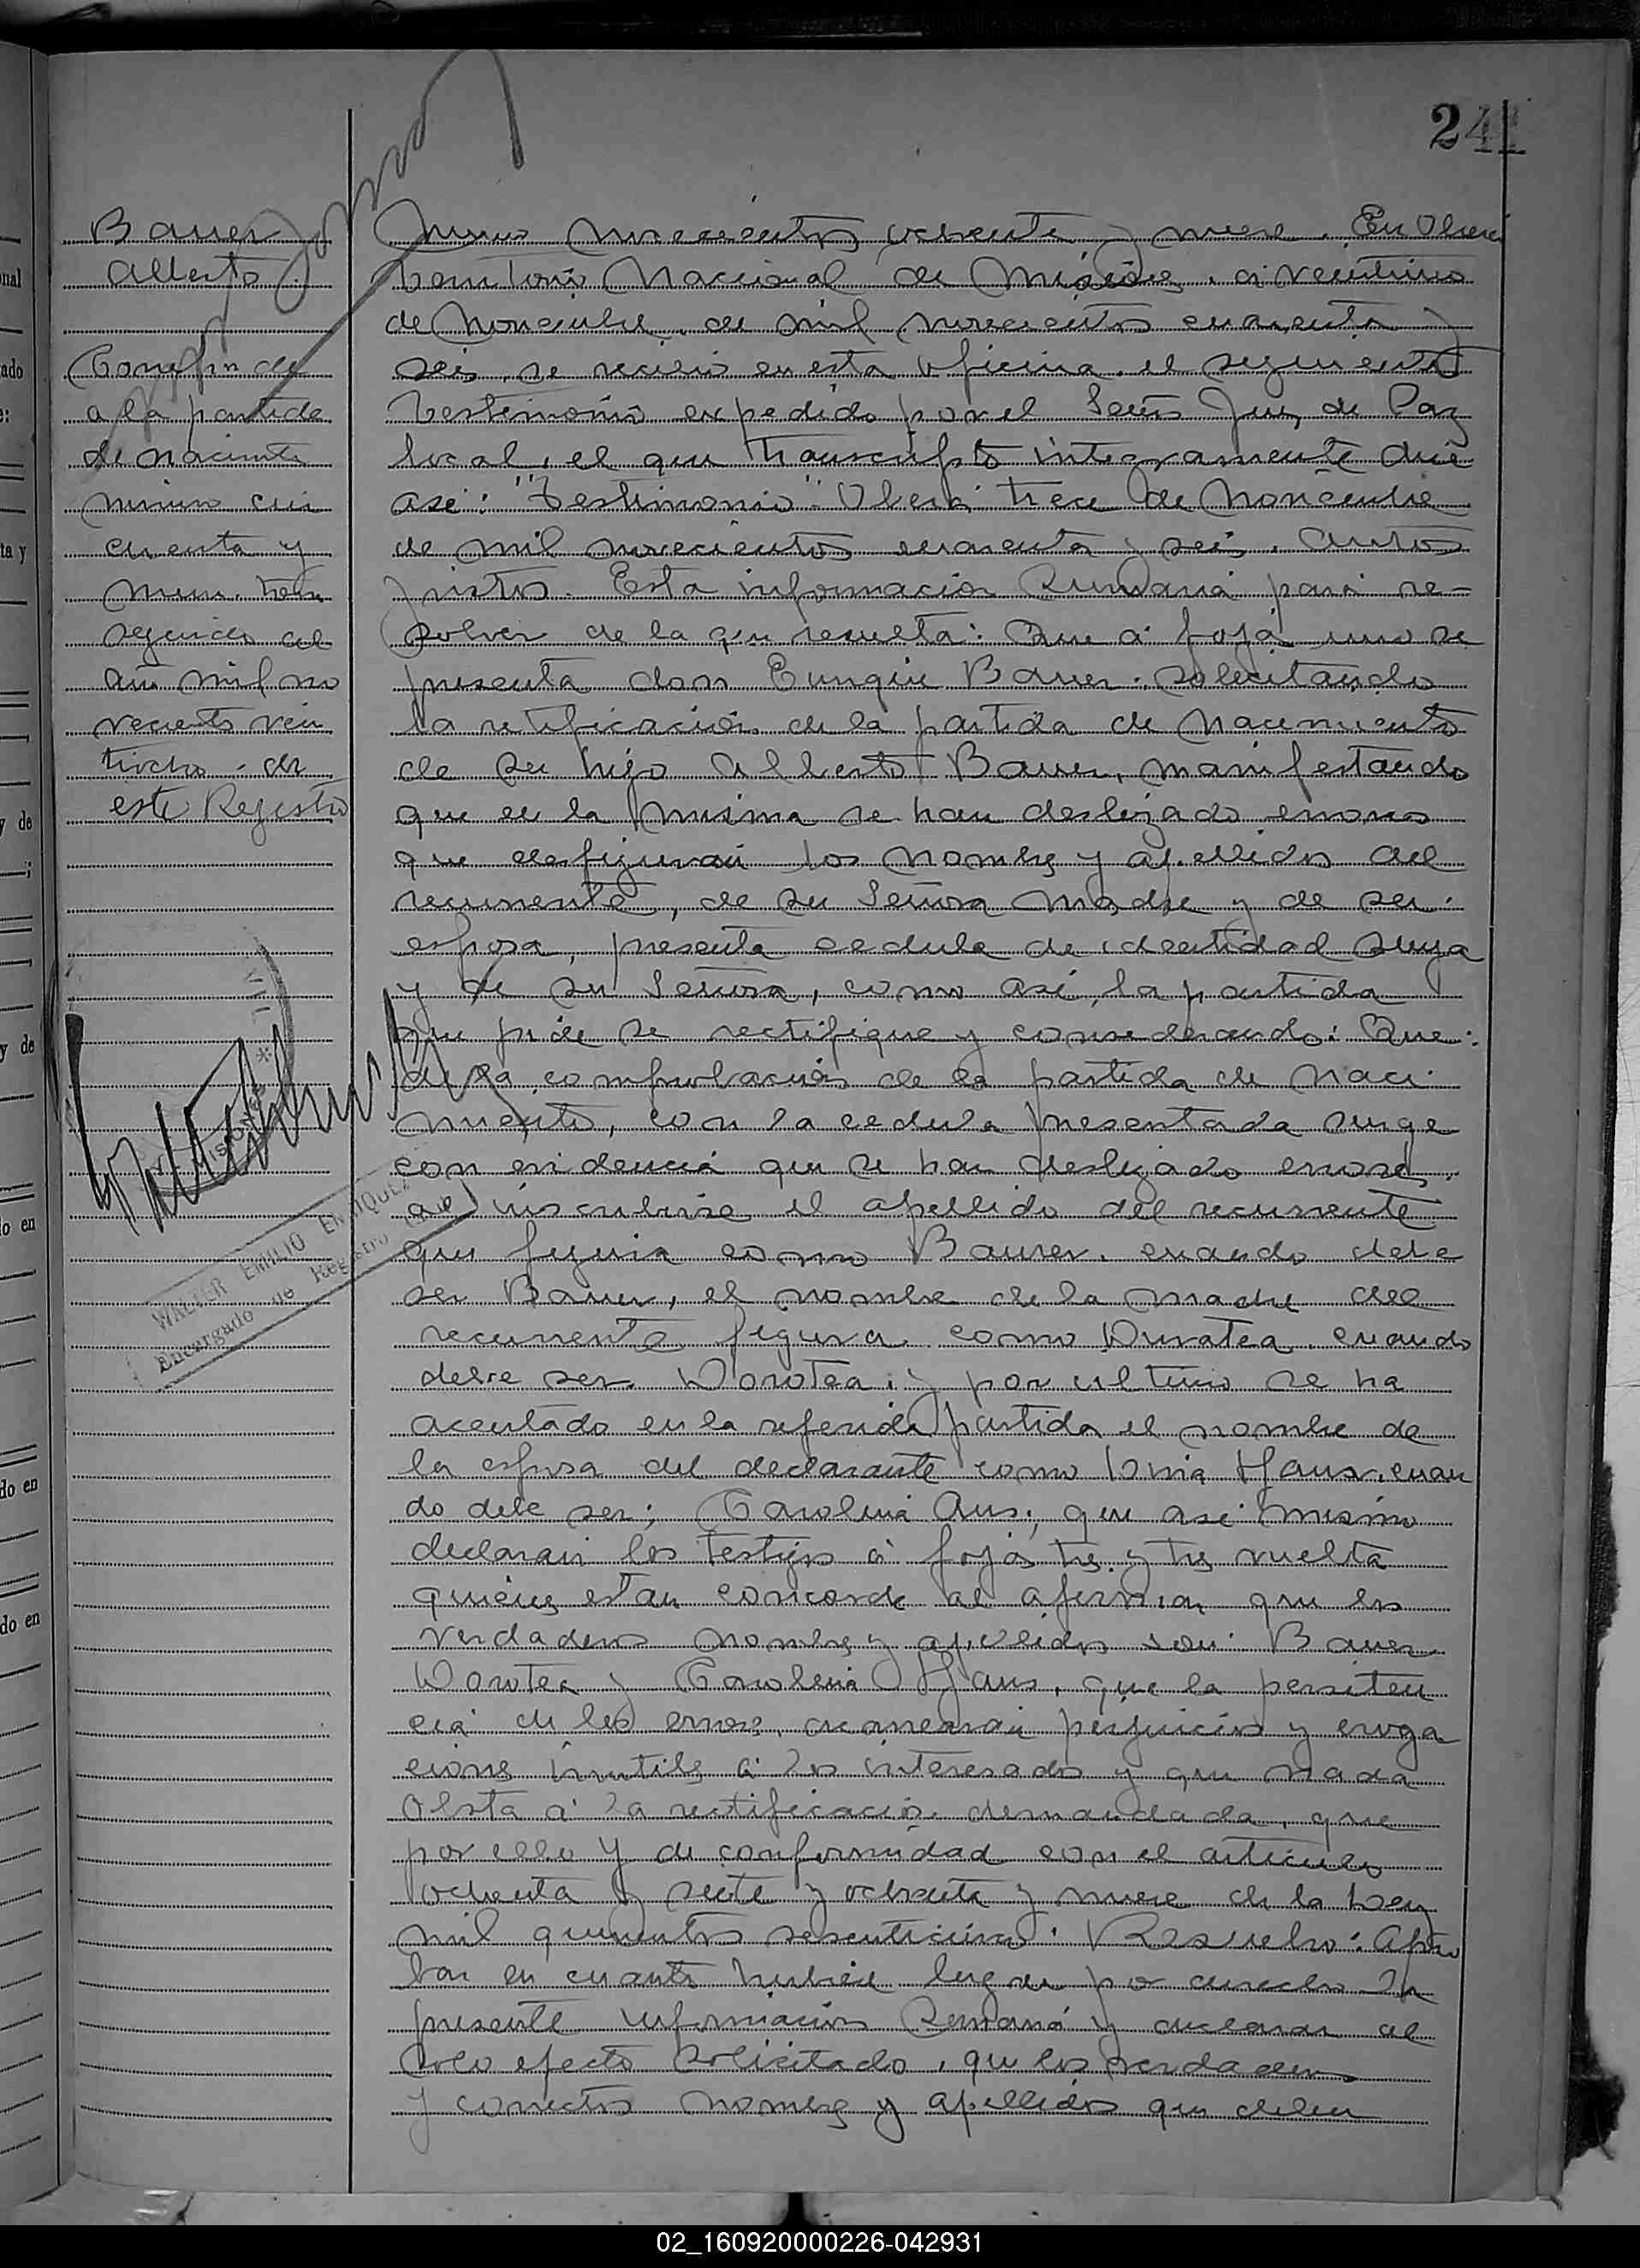 241
Bauer
Alberto
Corresponde
a la partida
de nacimiento
número cin
cuenta y
nueve. tomo
segundo del
año mil no
vecientos vein
tiocho. de
este Registro
MISIONES
WALTER EMILIO ENRIQUEZ
Encargado de Registro Civil
Número novecientos ochenta y nueve. En Oberá
territorio Nacional de Misiones. a veintiuno
de Noviembre. de mil novecientos cuarenta y
seis, se recibió en esta oficina. el siguiente
testimonio expedido por el Señor Juez de Paz
local, el que transcripto integramente dice
asi: "Testimonio". Oberá trece de Noviembre
de mil novecientos cuarenta y seis. Autos
y vistos. Esta información Sumaria para re-
solver de la que resulta: Que a foja uno se
presenta don Enrique Bauer. solicitando
la retificación de la partida de nacimiento
de su hijo Alberto Bauer, manifestando
que en la misma se han deslizado errores
que desfiguran los nombres y apellidos del
recurrente, de su Señora madre y de su
esposa, presenta cedula de identidad suya
y de su Señora, como así, la partida
que pide se rectifique y considerando: Que:
de la comprobación de la partida de naci
miento, con la cedula presentada surge
con evidencia que se han deslizado errores.
al inscribirse el apellido del recurrente
que figura como Bauser. cuando debe
ser Bauer, el nombre de la madre del
recurrente figura como Duratea. cuando
debe ser Dorotea. y por ultimo se ha
acentado en la referida partida el nombre de
la esposa del declarante como Unia Haus. cuan
do debe ser; Carolina Aus; que asi mismo
declaran los testigos a fojas tres y tres vuelta
quienes estan concorde al afirmar que los
verdaderos nombres y apellidos son: Bauer
Dorotea y Carolina Haus, que la persiten
cia de los errores. acarrearan perjuicios y eroga
ciones inutiles a los interesados y que nada
obsta a la rectificación demandada, que
por ello y de conformidad con el articulo
ochenta y siete y ochenta y nueve de la Ley
mil quinientos sesenticinco. Resuelvo: Apro
bar en cuanto hubiere lugar por derecho la
presente información Sumaria y declarar al
solo efecto solicitado, que los verdaderos
y correctos nombres y apellidos que deben
02_160920000226-042931